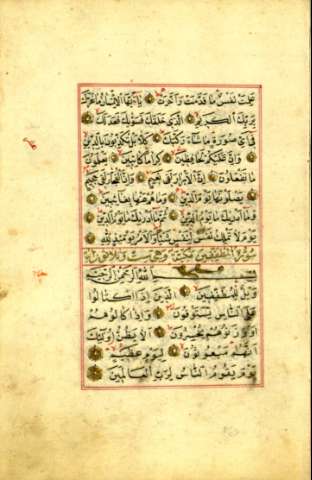 عَلِمَتْ نَفْسٌ مَا قَدَّمَتْ وَأَخَّرَتْ يَا أَيُّهَا الْإِنْسَانُ مَا غَرَّكَ
بِرَبِّكَ الْكَرِيمِ الَّذِي خَلَقَكَ فَسَوَّيكَ فَعَدَلَكَ
فِي أَيِّ صُورَةٍ مَا شَاءَ رَكَّبَكَ كَلَّا بَلْ تُكَذِّبُونَ بِالدِّينِ
وَإِنَّ عَلَيْكُمْ لَحَافِظِينَ كِرَامًا كَاتِبِينَ يَعْلَمُونَ
مَا تَفْعَلُونَ إِنَّ الْأَبْرَارَ لَفِي نَعِيمٍ وَإِنَّ الْفُجَّارَ لَفِي جَحِيمٍ
يَصْلَوْنَهَا يَوْمَ الدِّينِ وَمَا هُمْ عَنْهَا بِغَائِبِينَ
وَمَا أَدْرَيكَ مَا يَوْمُ الدِّينِ ثُمَّ مَا أَدْرَيكَ مَا يَوْمُ الدِّينِ
يَوْمَ لَا تَمْلِكُ نَفْسٌ لِنَفْسٍ شَيْئًا وَالْأَمْرُ يَوْمَئِذٍ لِلَّهِ
سورة المطففين مكية وهي ست وثلاثون آية
بِسْمِ اللَّهِ الرَّحْمَنِ الرَّحِيمِ
وَيْلٌ لِلْمُطَفِّفِينَ الَّذِينَ إِذَا اكْتَالُوا
عَلَى النَّاسِ يَسْتَوْفُونَ وَإِذَا كَالُوهُمْ
أَوْ وَزَنُوهُمْ يُخْسِرُونَ أَلَا يَظُنُّ أُولَئِكَ
أَنَّهُمْ مَبْعُوثُونَ لِيَوْمٍ عَظِيمٍ
يَوْمَ يَقُومُ النَّاسُ لِرَبِّ الْعَالَمِينَ